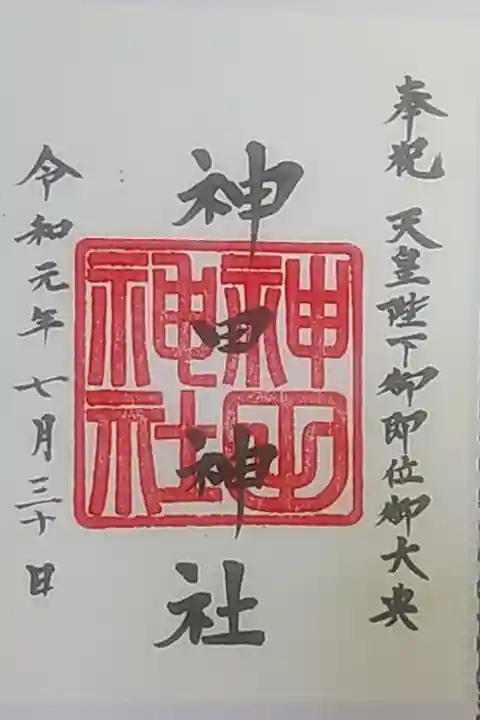 奉祝 天皇陛下御即位御大典
神田神社
神田神社
令和元年七月三十日